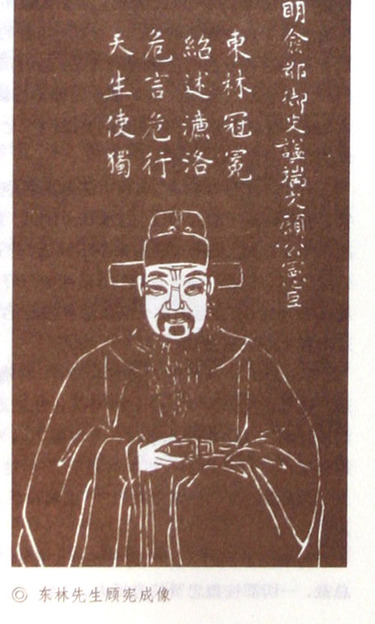 明僉都御史謚端文顧公憲
東林冠冕
紹述濂洛
危言危行
天生使獨
◎ 东林先生顾宪成像